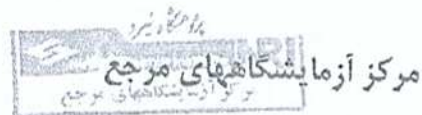 پژوهشگاه نیرو
مرکز آزمایشگاههای مرجع
مرکز آزمایشگاههای مرجع